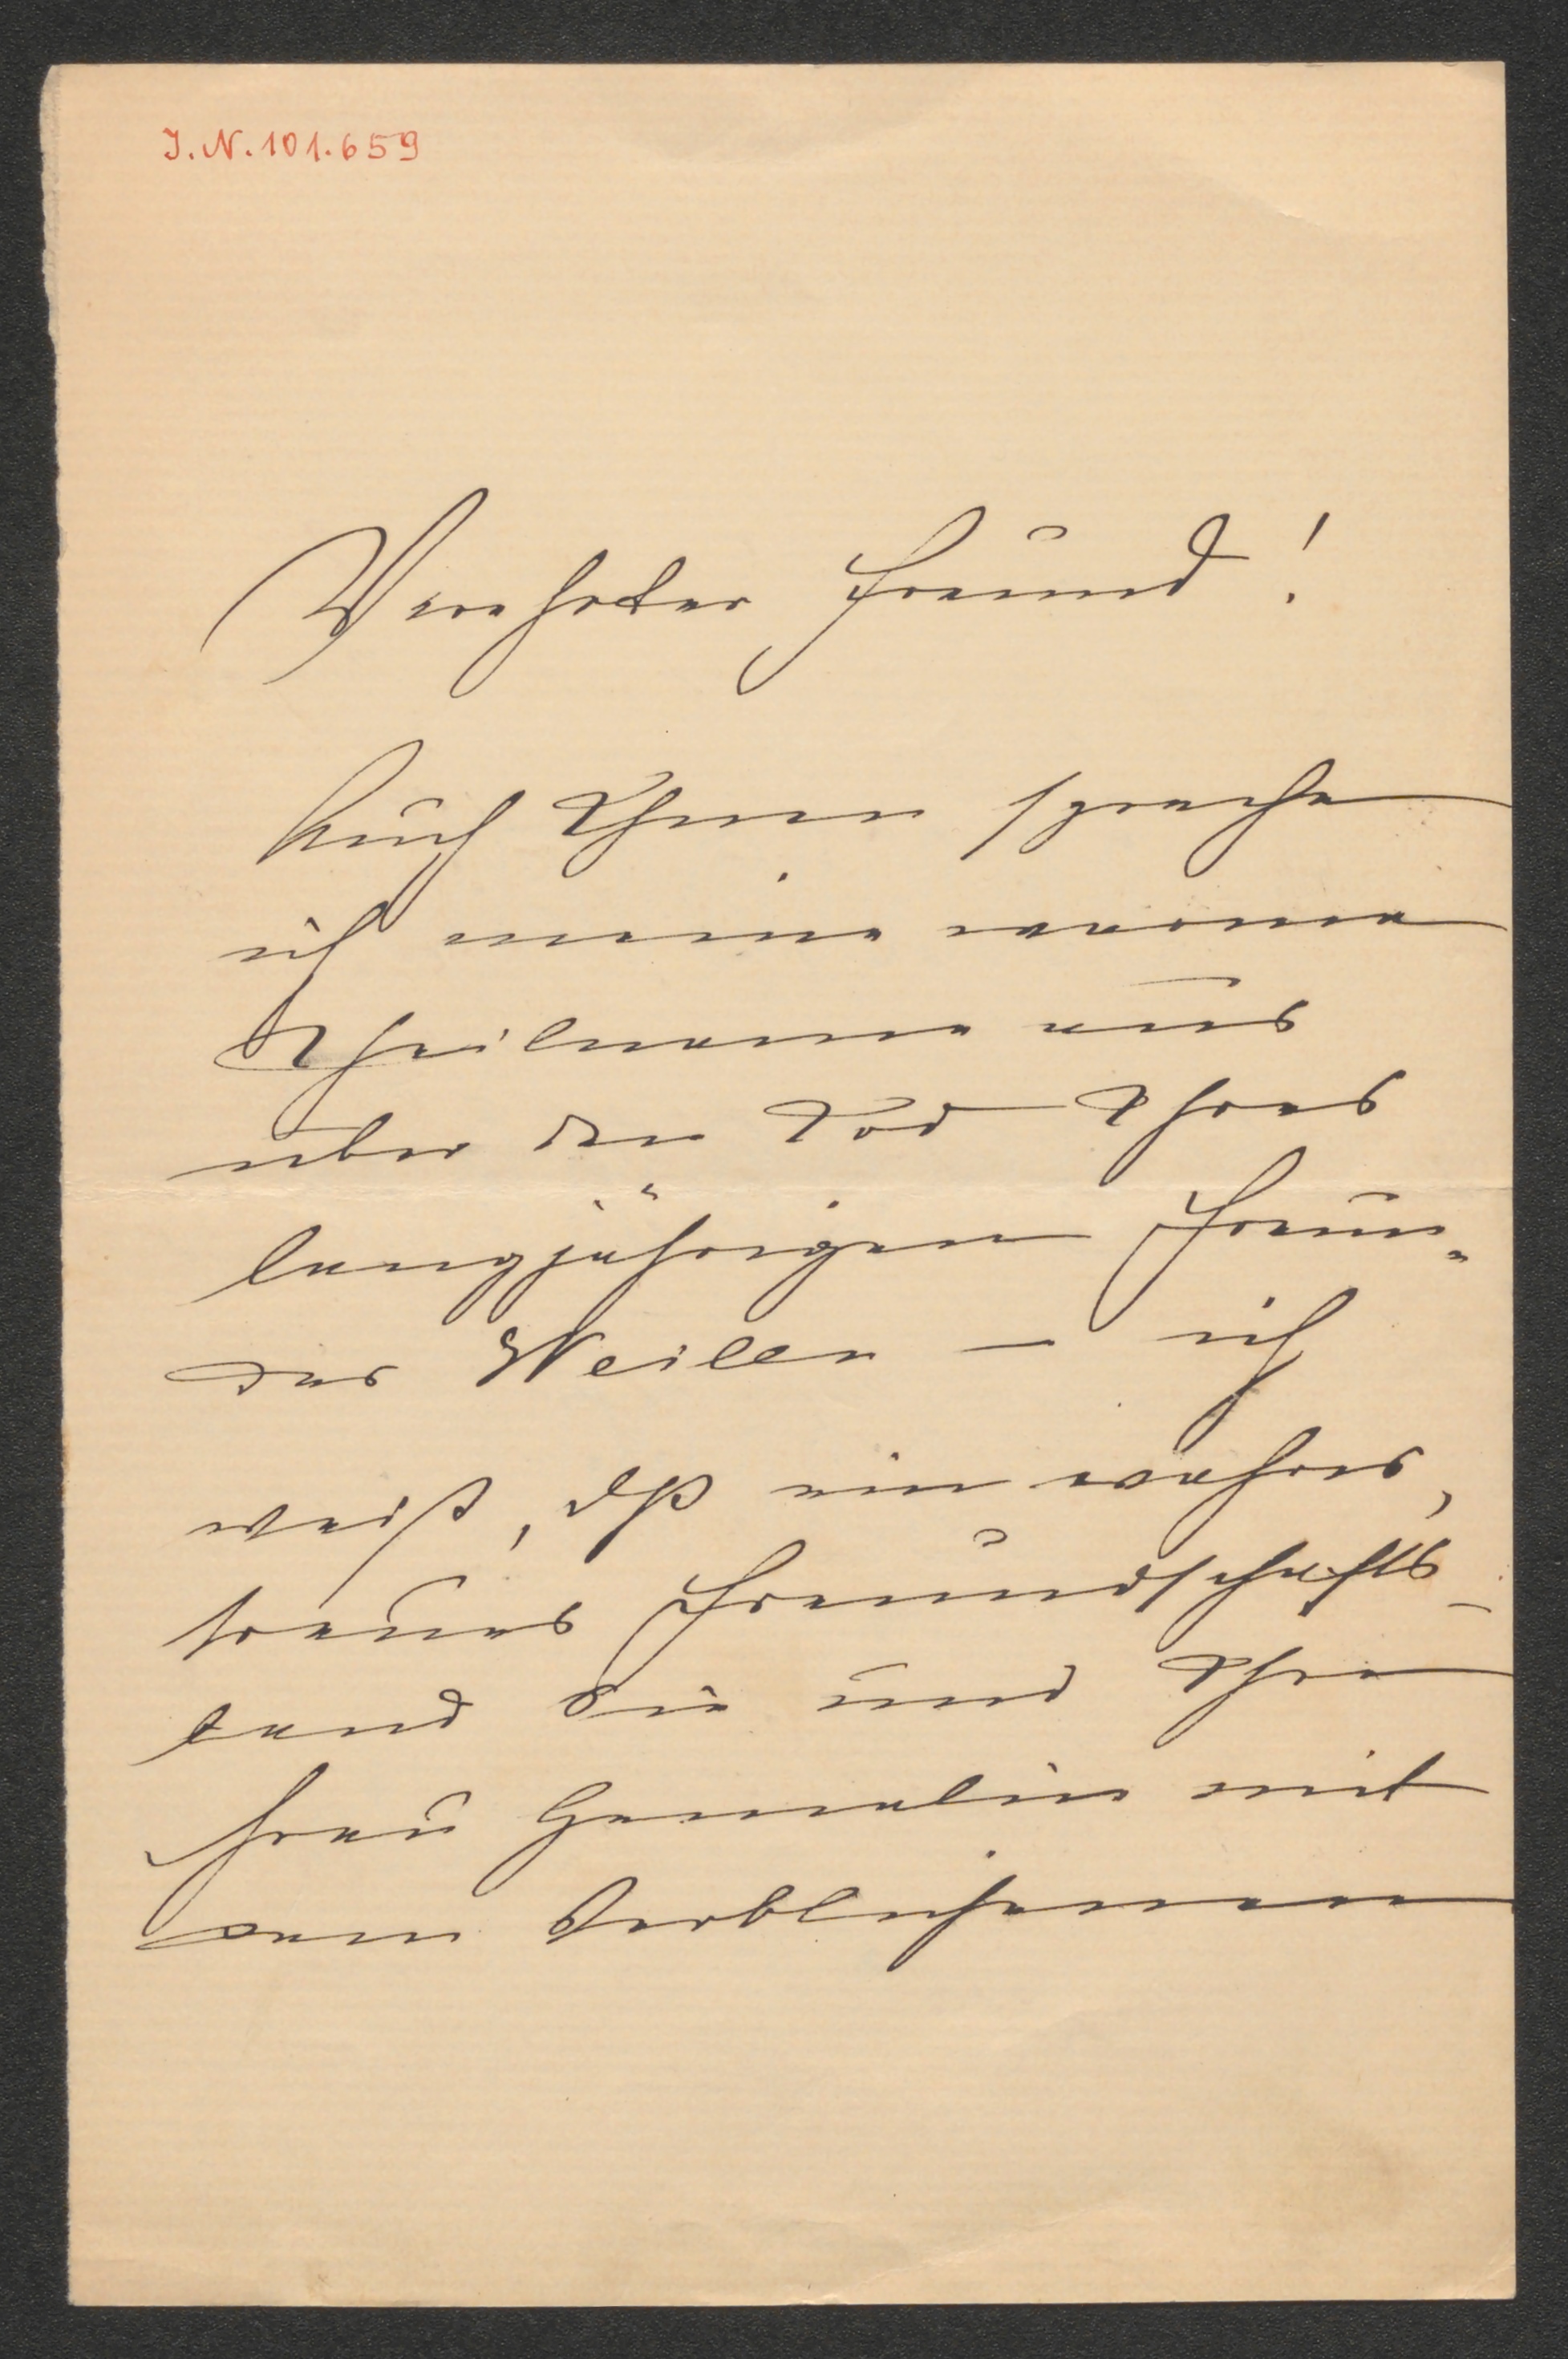 J.N.101.659
Verehrter Freund!
Auch Ihnen spreche
ich meine warme
Theilname aus
über den Tod Ihres
langjährigen Freun„
des Weilen – ich
weiß, dß ein wahres,
treues Freundschafts-
band Sie und Ihre
Frau Gemalin mit
dem Verblichenen